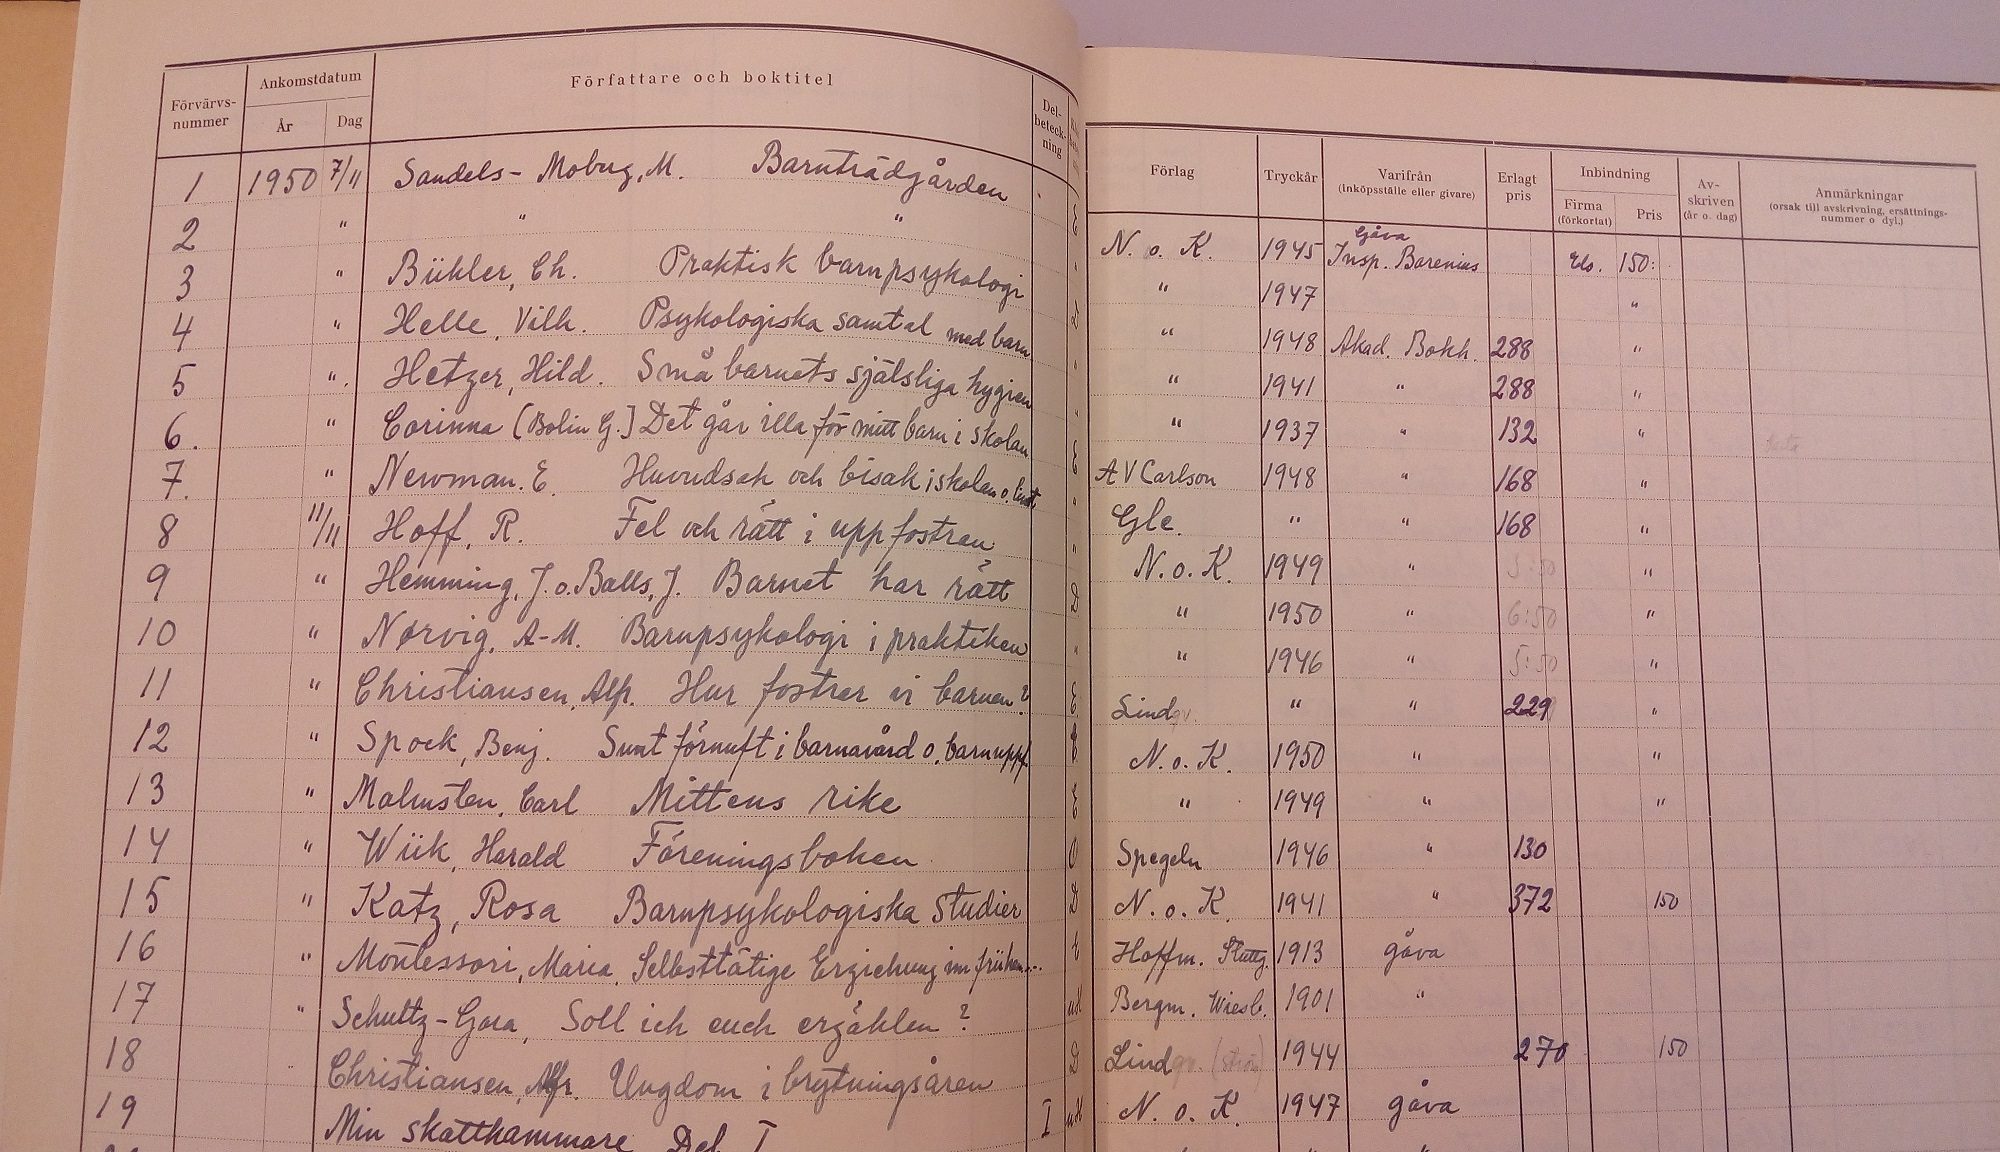 Förvärvs-nummer Ankomstdatum År Dag Författare och boktitel Del-beteck-ning
1 1950 7/11 Sandels-Moberg, M. Barnträdgården
2 " " "
3 " Bühler, Ch. Praktisk barnpsykologi
4 " Helle, Vilh. Psykologiska samtal med barn
5 " Hetzer, Hild. Små barnets själsliga hygien
6. " Corinna [Bolin G.] Det går illa för mitt barn i skolan
7. " Newman. E. Huvudsak och bisak i skolan o.
8 11/11 Hoff, R. Fel och rätt i uppfostran
9 " Hemming, J. o. Balls, J. Barnet har rätt
10 " Nørvig, A-M. Barnpsykologi i praktiken
11 " Christiansen, Alfr. Hur fostrar vi barnen?
12 " Spock, Benj. Sunt förnuft i barnavård o. barnuppf.
13 " Malmsten, Carl Mittens rike
14 " Wiik, Harald Föreningsboken
15 " Katz, Rosa Barnpsykologiska studier
16 " Montessori, Maria. Selbsttätige Erziehung im frühen...
17 " Schultz-Gora, Soll ich euch erzählen?
18 Christiansen, Alfr. Ungdom i brytningsåren
19 Min skattkammare Del I I
Förlag Tryckår Varifrån (inköpsställe eller givare) Erlagt pris Inbindning Firma (förkortat) Pris Av-skriven (år o. dag) Anmärkningar (orsak till avskrivning, ersättnings-nummer o dyl.)
Gåva
N. o. K. 1945 Insp. Barenius 150:
" 1947 "
" 1948 Akad. Bokh. 288 "
" 1941 " 288 "
" 1937 " 132 "
A V Carlson 1948 " 168 "
Gle. " " 168 "
N. o. K. 1949 " 5:50 "
" 1950 " 6:50 "
" 1946 " 5:50 "
Lindqv. " " 229 "
N. o. K. 1950 " "
" 1949 " "
Spegeln 1946 " 130
N. o. K. 1941 " 372 150
Hoffm. Stuttg. 1913 gåva
Bergm. Wiesb. 1901 "
Lindqv. (ströms) 1944 270 150
N. o. K. 1947 gåva